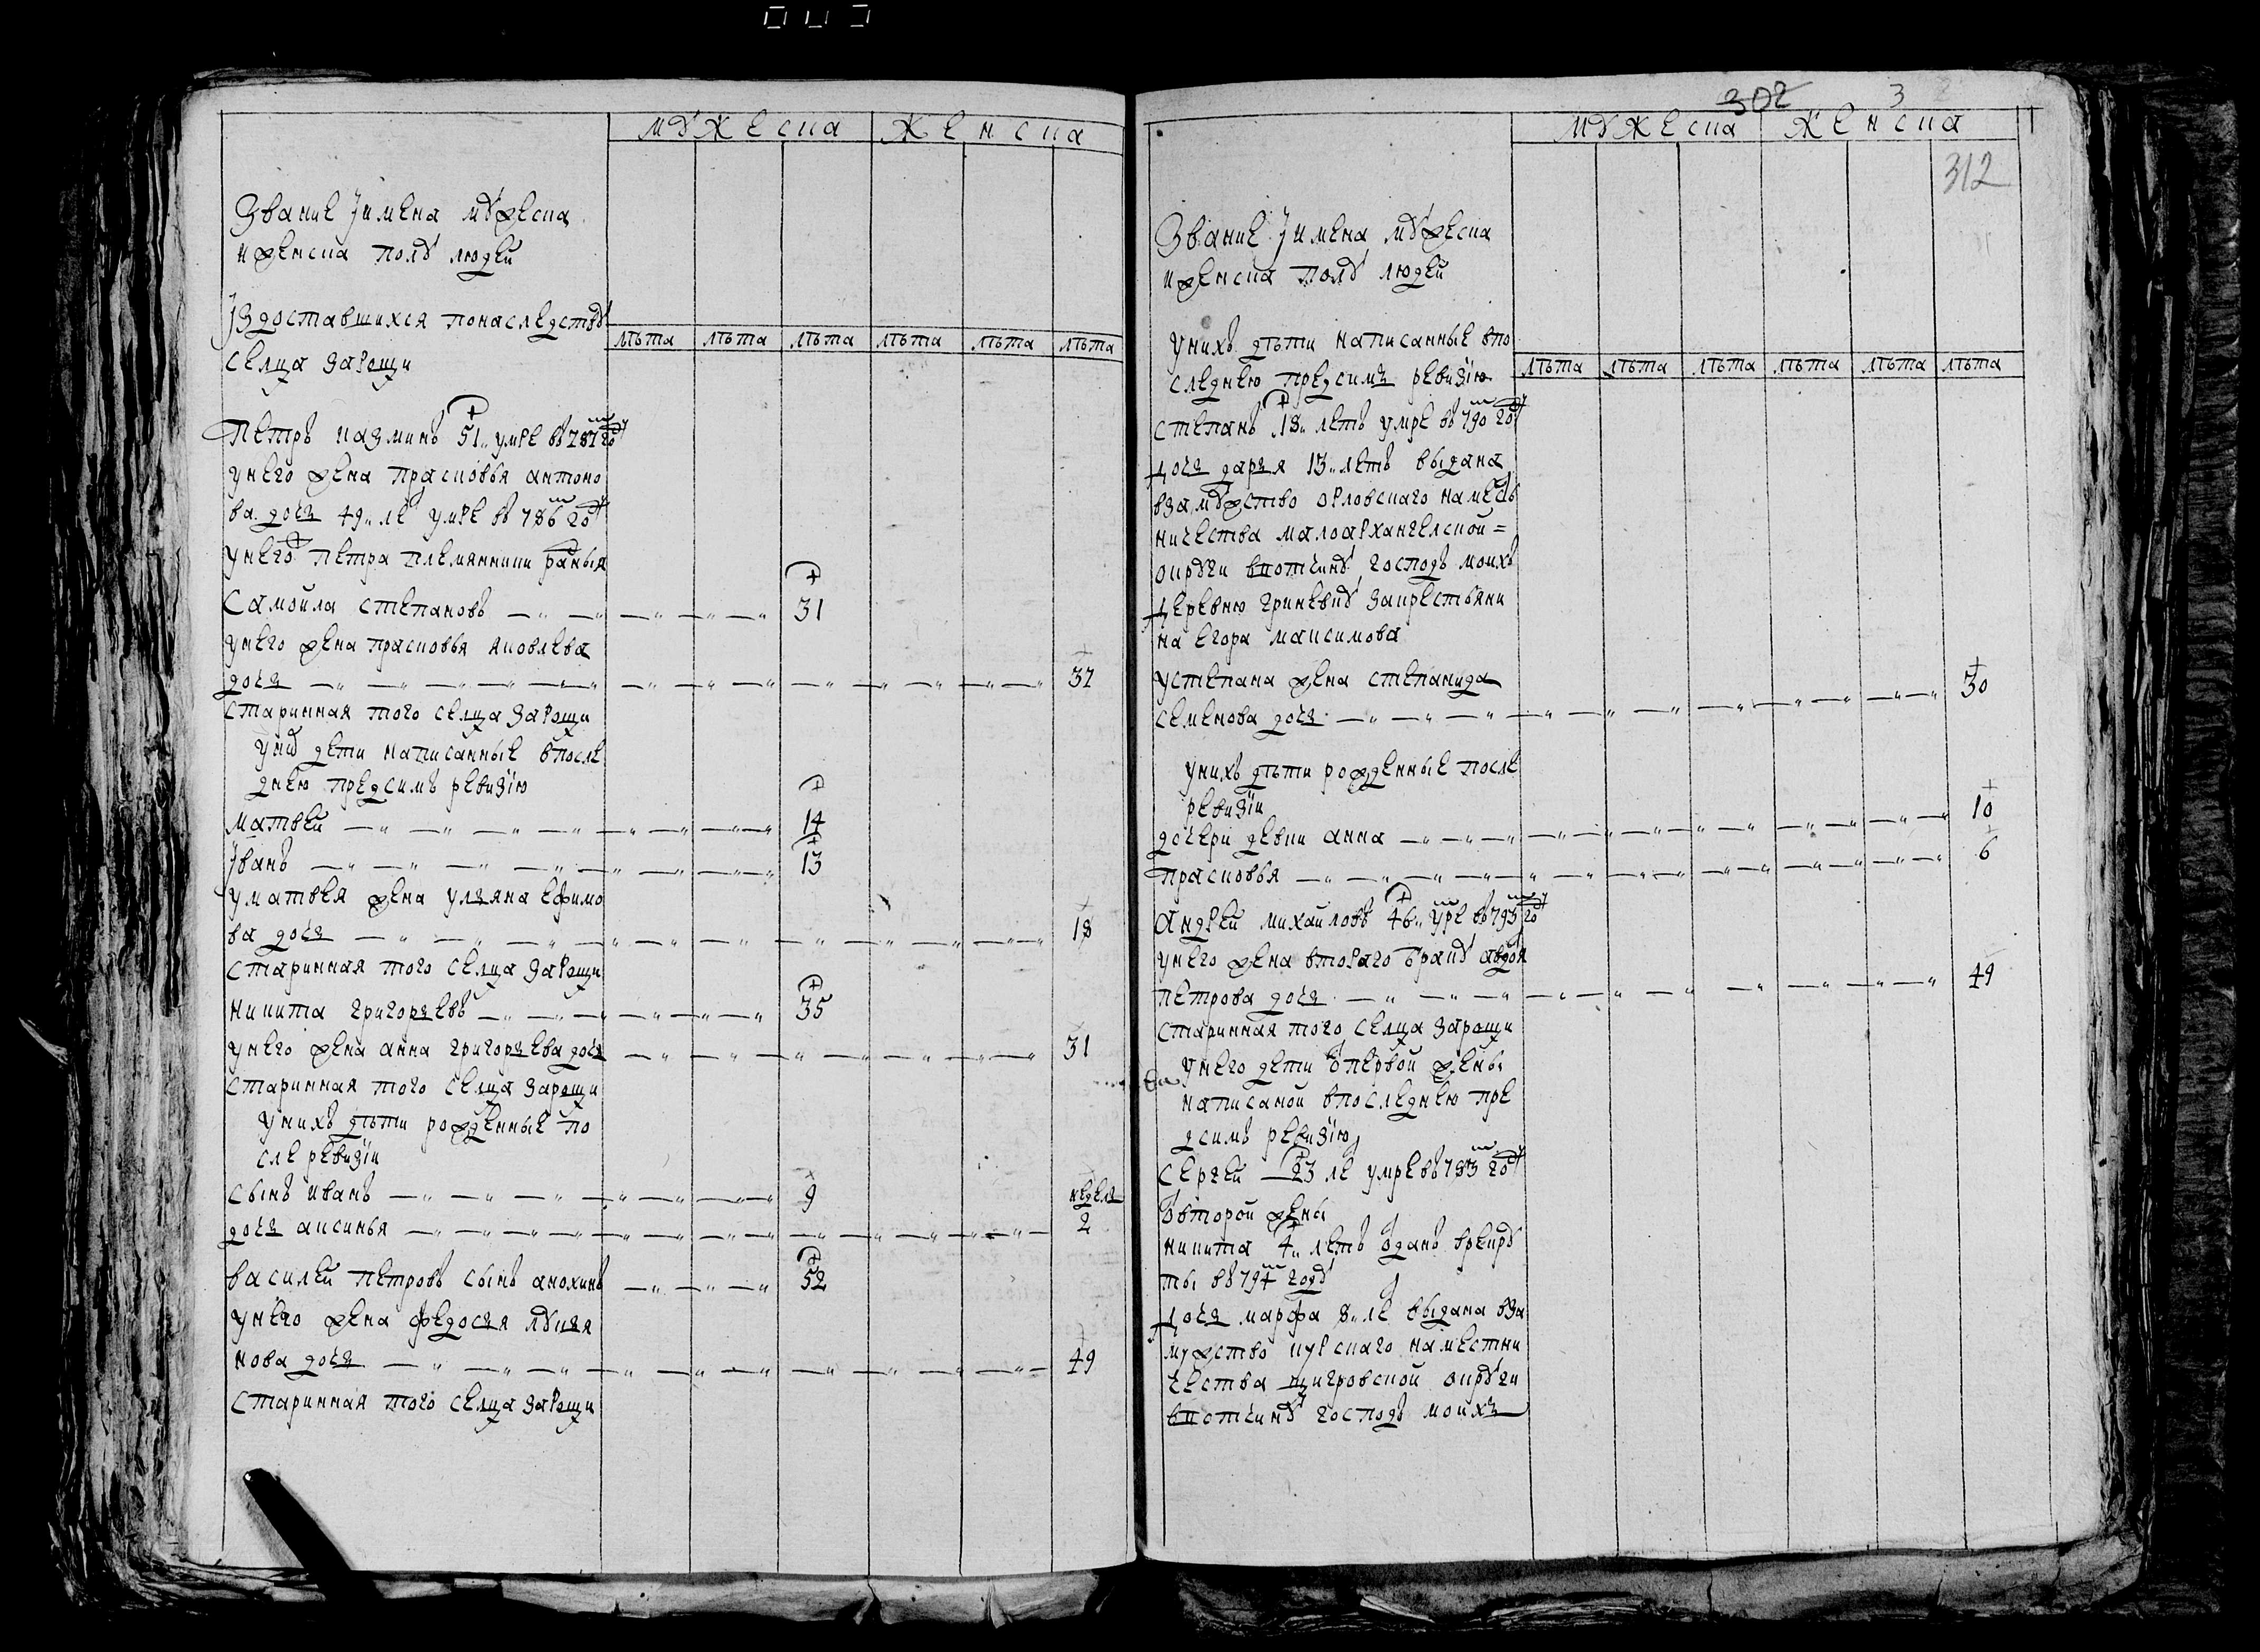 мужеска женска
Звание Iимена мужеска
иженска полу людей
Iздоставшихся понаследству
селца зарощи
лѣта лѣта лѣта лѣта лѣта лѣта
Петръ казминъ 51 умре въ 787 году
унего жена прасковья антоно
ва дочь 49 ле умре въ 786 году
унего петра племянники
Самойла степановъ 31
унего жена прасковья яковлева
дочь 32
старинная того селца зарощи
уних дети написанные впосле
днею предсимъ ревизїю
матвей 14
Iванъ 13
уматвея жена ульяна ефимо
ва дочь 18
старинная того селца зарощи
никита григорьевъ 35
унего жена анна григорьева дочь 31
старинная того селца зарощи
унихъ дѣти рожденные по
сле ревизїи
сынъ иванъ 9 неделя
дочь аксинья 2
василей петровъ сынъ анохинъ 52
унего жена федосья лукья
нова дочь 49
старинная того селца зарощи
302 3
мужеска женска
312
Звание Iимена мужеска
иженска полу людей
унихъ дѣти написанные впо
следнею предсимъ ревизїю
лѣта лѣта лѣта лѣта лѣта лѣта
степанъ 18 летъ умре въ 790 году
дочь дарья 13 летъ выдана
взамужство орловскаго намест
ничества малоархангелской =
округи вкотчину господъ моихъ
деревню гриневку закрестьяни
на егора максимова
устепана жена степанида
семенова дочь 30
унихъ дѣти рожденные после
ревизїи
дочери девки анна 10
прасковья 6
андрей михайловъ 46 умре въ 793 году
унего жена втораго браку авдотья
петрова дочь 49
старинная того селца зарощи
унего дети от первой жены
написаной впоследнею пре
дсимъ ревизїю
сергей 23 ле умре въ 783 году
от второй жены
никита 4 летъ отданъ врекру
ты въ 794 году
дочь марфа 8 ле выдана вза
мужство курскаго наместни
чества щигровской округи
вкотчину господъ моихъ